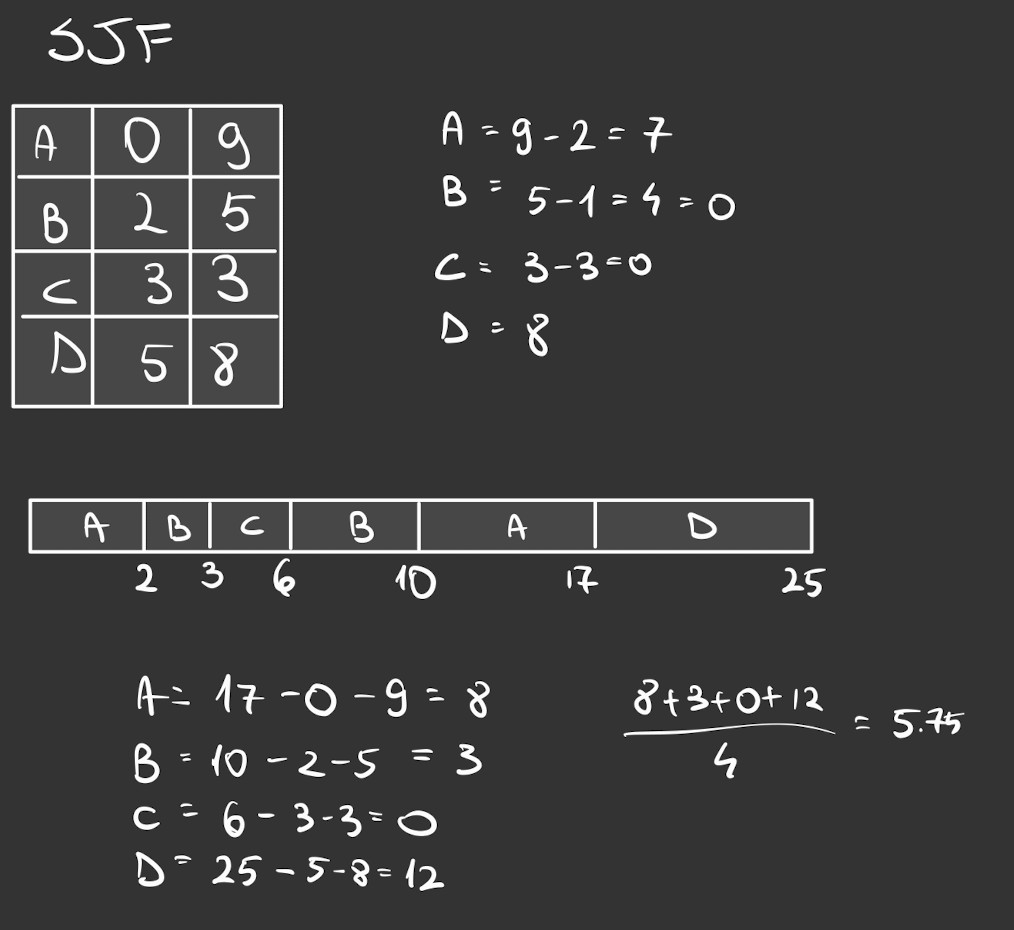 SJF
A 0 9
B 2 5
C 3 3
D 5 8
A = 9 - 2 = 7
B = 5 - 1 = 4 = 0
C = 3 - 3 = 0
D = 8
A B C B A D
2 3 6 10 17 25
A = 17 - 0 - 9 = 8
B = 10 - 2 - 5 = 3
C = 6 - 3 - 3 = 0
D = 25 - 5 - 8 = 12
8 + 3 + 0 + 12
4
= 5.75